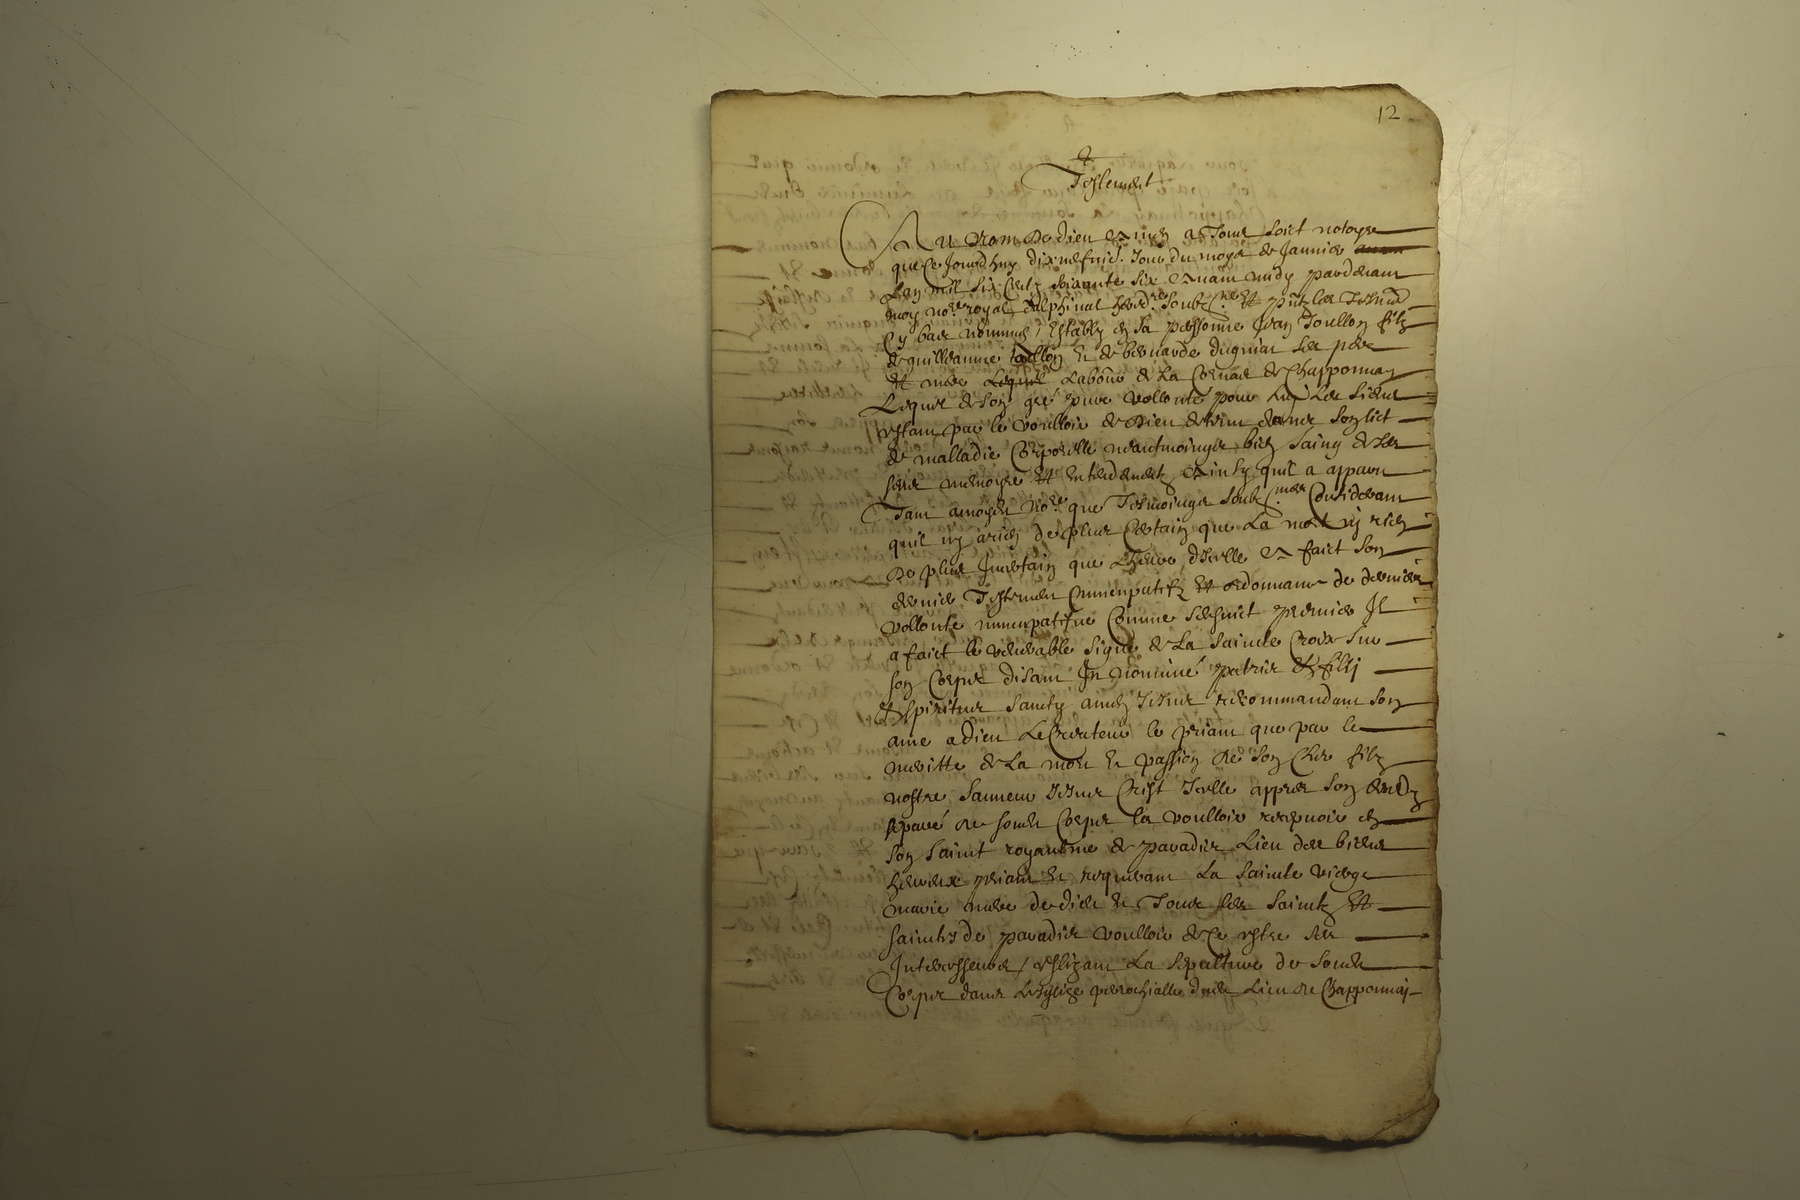 12
Testement
Au Nom de dieu Amen a Tous soict notoyre
que Ce Jourdhuy dixneufvie. Jour du moys de Janvier
Lan mil six Centz soixante six avant midy pardevant
moy nore. royal dalphinal hered.re soubz.ne et pntz les Tesmoins
Cy bas nommes / Estably en sa personne Jean Toullon filz
de guilleaume toullon et de bernarde duguiat ses pere
et mere Laboure de La Cornas de Chapponnay
Lequel de son gré pure vollonté pour Luy Les siens
estant par le voulloir de Dieu detenu dans son lict
de malladie Corporelle neantmoingz bien saing de ses
sens memoyre et Entendement ainsy quil a apparu
Tant amoydit nore. que Tesmoingz soubz.nes Considerant
quil ny a rien de plus Certain que La mort ny rien
de plus Incertain que Lheure dIcelle a faict son
dernier Testement nuncupatif et ordonnance de derniere
vollonté nuncupative Comme sensuict premier Il
a faict le venerable signe de La sainte Croix sur
son Corps disant In nomine patris et filij
et spiritus sancty amen Jesus recommandant son
ame a dieu Le Createur le priant que par le
meritte de La mort et passion de son Cher filz
nostre sauveur Jesus Crist Icelle appres son
separé de sondit Corps la voulloir recepvoir en
son saint royaulme de paradis Lieu des biens
hereux priant et requerant La sainte vierge
marie mere de dieu et Tous les saintz et
sainctes de paradis voulloir de Ce estre ses
Intercesseurs / eslizant La sepulture de sondit
Corps dans Lesglize parrochialle dudit Lieu de Chapponnay